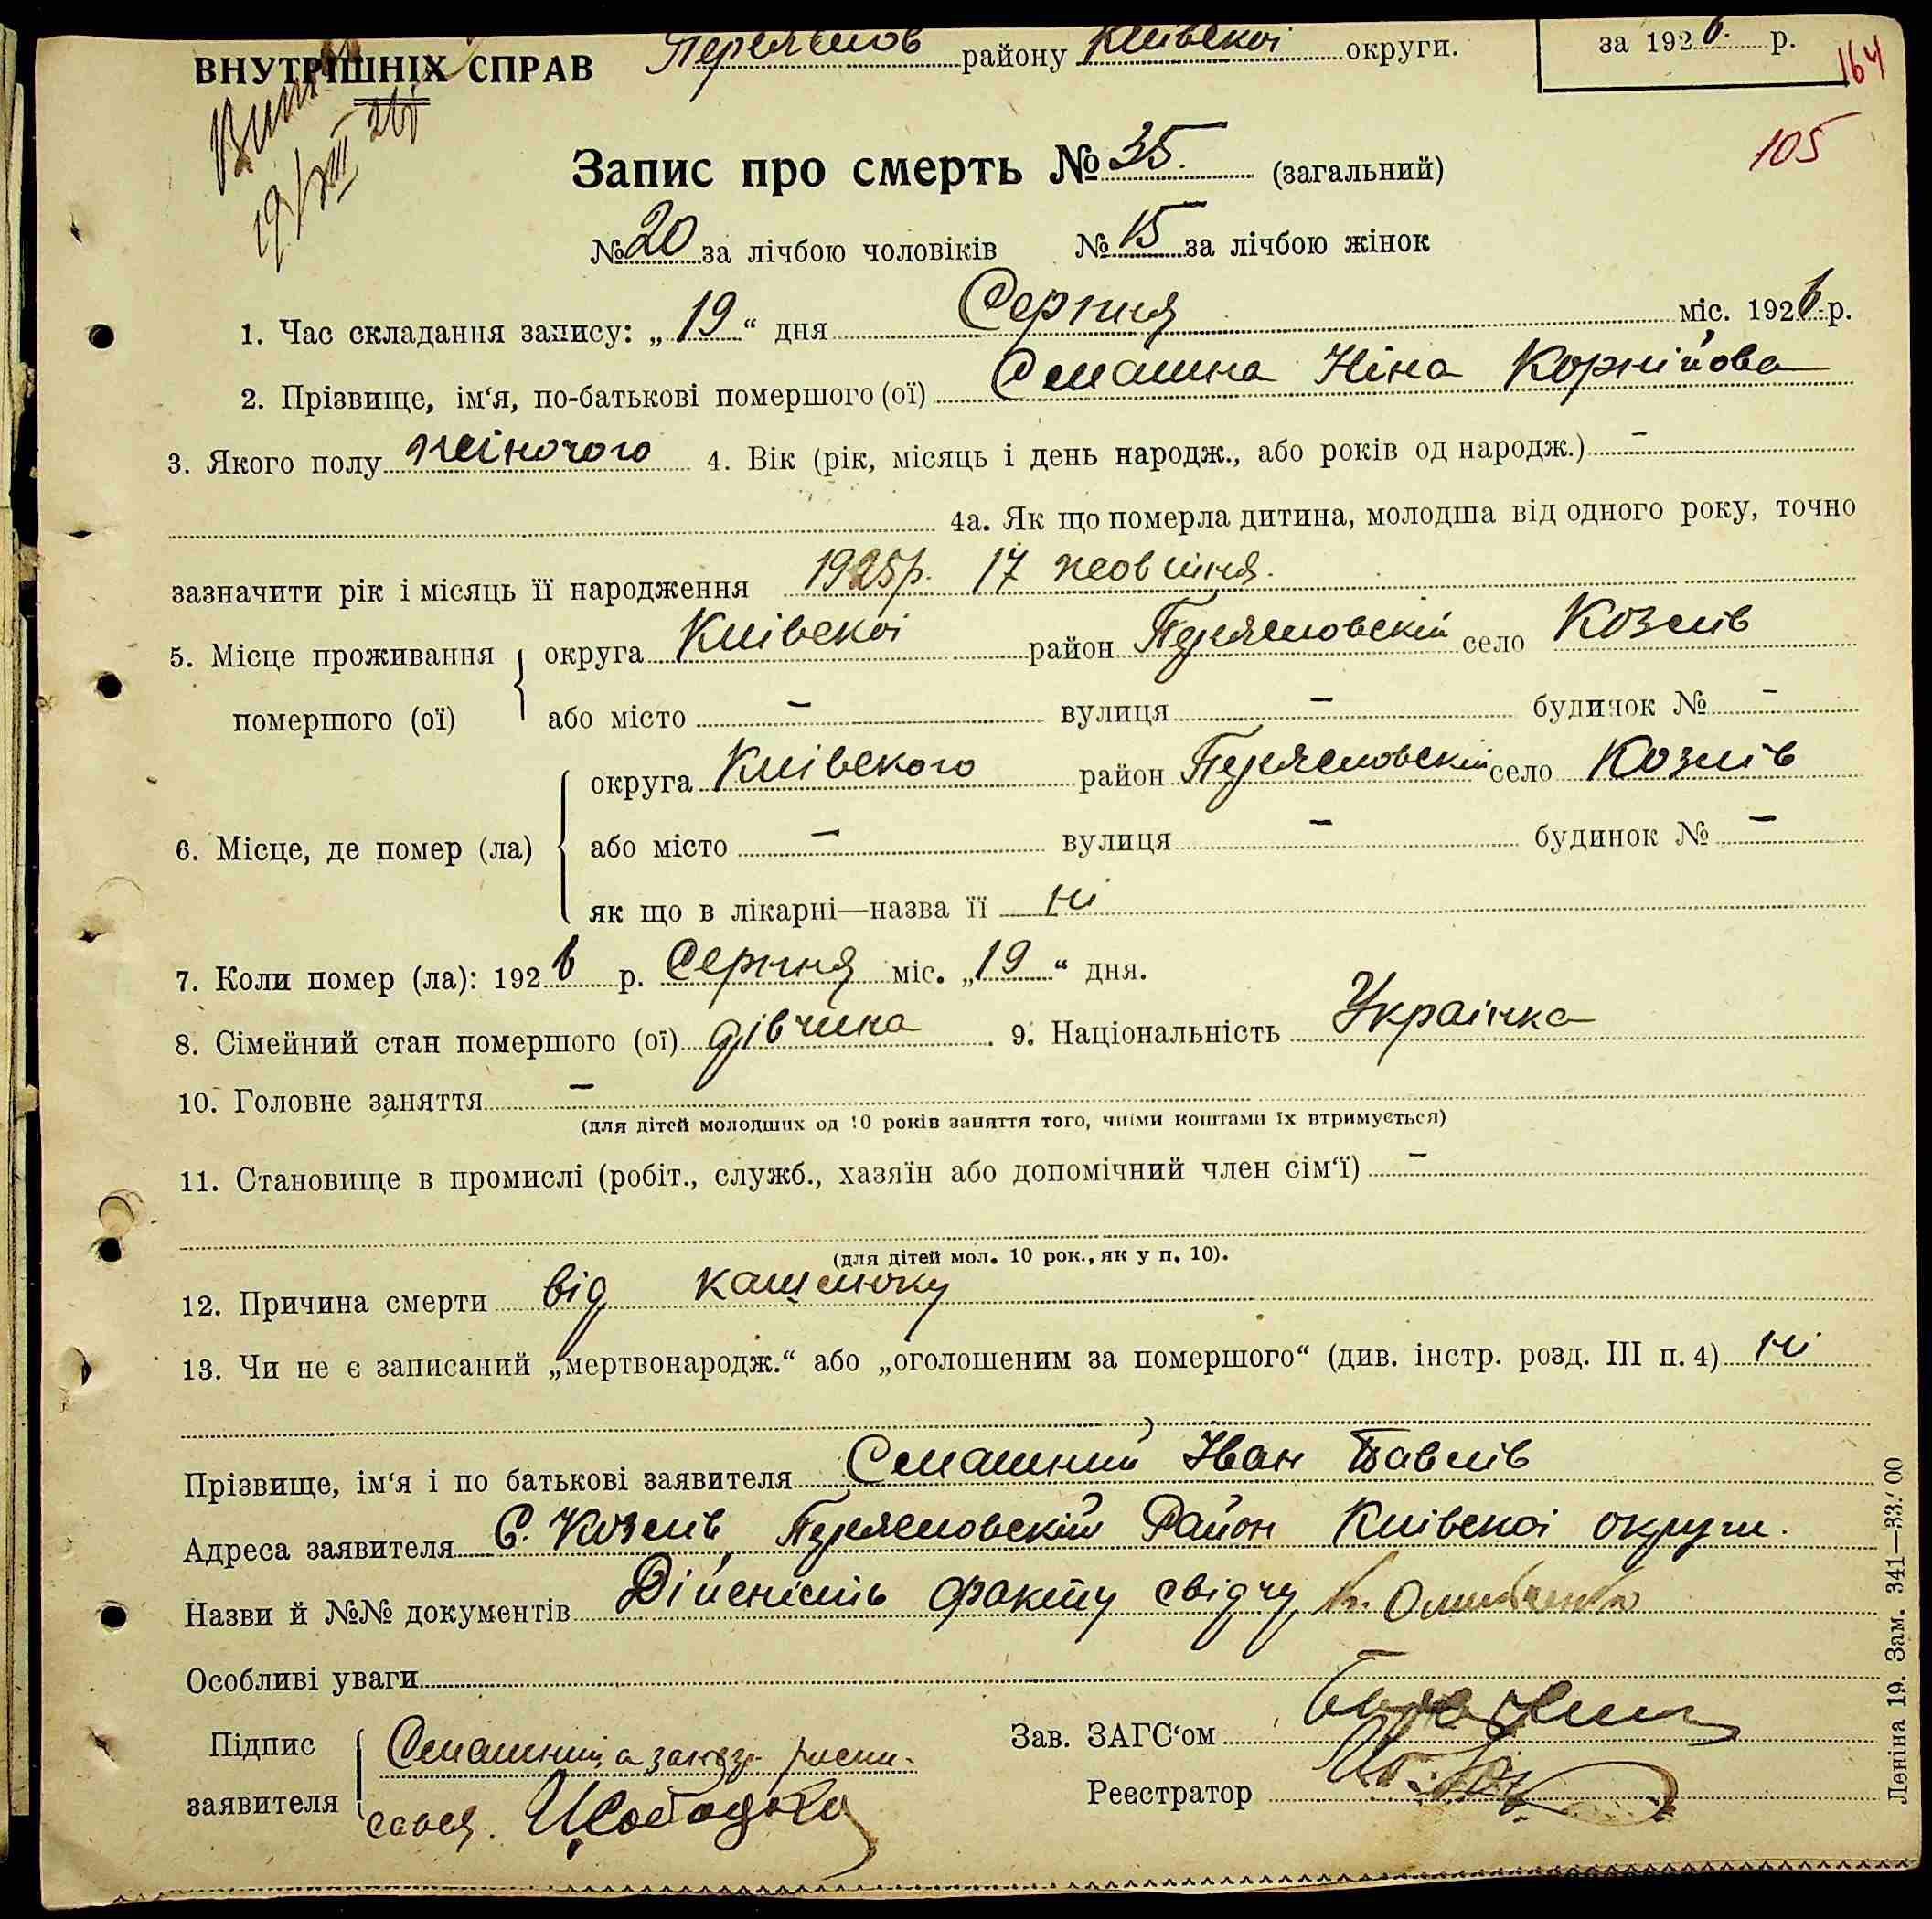 ВНУТРІШНІХ СПРАВ Переяслов району Київскої округи. за 1926. р.
164
19/VIII 26
105
Запис про смерть № 35. (загальний)
№ 20 за лічбою чоловіків № 15 за лічбою жінок
1. Час складання запису: „19“ дня Серпня міс. 1926 р.
2. Прізвище, ім‘я, по-батькові помершого (ої) Смашна Ніна Корнійова
3. Якого полу жіночого 4. Вік (рік, місяць і день народж., або років од народж.) –
4а. Як що померла дитина, молодша від одного року, точно
зазначити рік і місяць її народження 1925р. 17 жовтня.
5. Місце проживання округа Київскої район Переясловскій село Козлів
помершого (ої) або місто – вулиця – будинок № –
округа Київского район Переясловскій село Козлів
6. Місце, де помер (ла) або місто – вулиця – будинок № –
як що в лікарні—назва її ні
7. Коли помер (ла): 1926 р. Серпня міс. „19“ дня.
8. Сімейний стан помершого (ої) дівчина. 9. Національність Украінка
10. Головне заняття –
(для дітей молодших од 10 років заняття того, чиїми коштами їх втримується)
11. Становище в промислі (робіт., служб., хазяїн або допомічний член сім‘ї) –
(для дітей мол. 10 рок., як у п. 10).
12. Причина смерти від кашлюку
13. Чи не є записаний „мертвонародж.“ або „оголошеним за помершого“ (див. інстр. розд. III п. 4) ні
Прізвище, ім‘я і по батькові заявителя Смашний Іван Павлів
Адреса заявителя С. Козлів, Переясловскій Район Київскої округи.
Назви й №№ документів Дійсність факту свідчу
Особливі уваги
Підпис Смашний, а за його Зав. ЗАГС‘ом
заявителя Реєстратор
Леніна 19. Зам. 341—33.'00